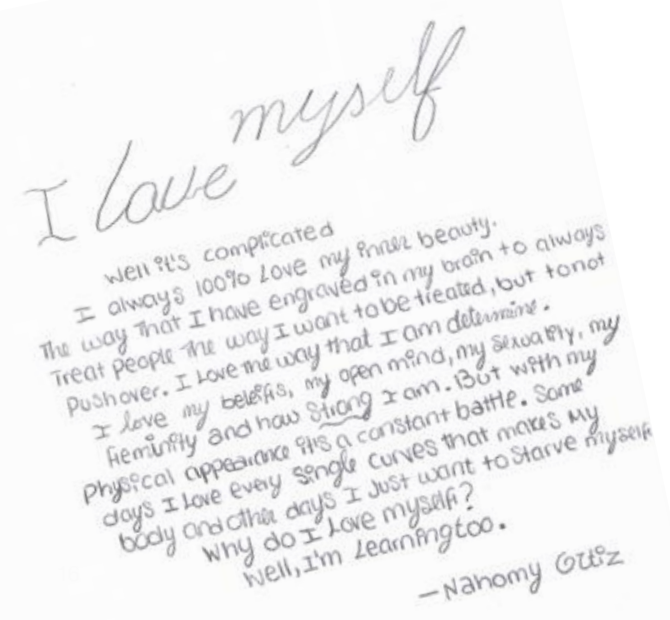 I love myself
well it's complicated
I always 100% Love my inner beauty.
The way that I have engraved in my brain to always
Treat people the way I want to be treated, but to not
pushover. I Love the way that I am determine.
I love my beleifis, my open mind, my sexuality, my
feminity and how strong I am. But with my
Physical appearance it's a constant battle. Some
days I Love every single curves that makes My
body and other days I Just want to starve myself
Why do I Love myself?
Well, I'm Learning too.
—Nahomy Ortiz